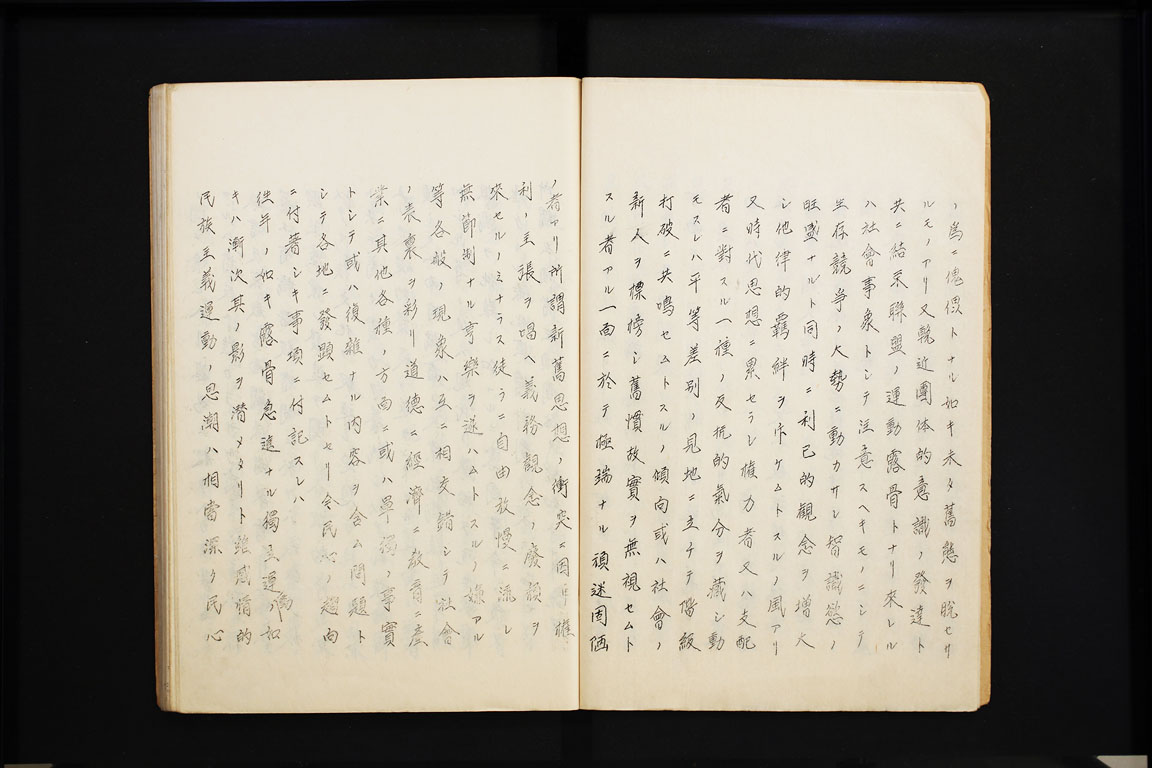 ノ為ニ傀儡トナル如キ未タ舊態ヲ脱セサ
ルモノアリ又輓近團体的意識ノ發達ト
共ニ結束聯盟ノ運動露骨トナリ來レル
ハ社會事象トシテ注意スヘキモノニシテ
生存競争ノ大勢ニ動カサレ智識慾ノ
旺盛ナルト同時ニ利己的觀念ヲ増大
シ他律的羈絆ヲ斥ケムトスルノ風アリ
又時代思想ニ累セラレ權力者又ハ支配
者ニ對スル一種ノ反抗的氣分ヲ藏シ動
モスレハ平等差別ノ見地ニ立チテ階級
打破ニ共鳴セムトスルノ傾向或ハ社會ノ
新人ヲ標榜シ舊慣故實ヲ無視セムト
スル者アル一面ニ於テ極端ナル頑迷固陋
ノ者アリ所謂新舊思想ノ衝突ニ因リ權
利ノ主張ヲ唱ヘ義務觀念ノ廢頽ヲ
來セルノミナラス徒ラニ自由放慢ニ流レ
無節制ナル享樂ヲ逐ハムトスルノ嫌アル
等各般ノ現象ハ互ニ相交錯シテ社會
ノ表裏ヲ彩リ道徳ニ經濟ニ教育ニ産
業ニ其他各種ノ方面ニ或ハ單獨ノ事實
トシテ或ハ復雜ナル内容ヲ含ム問題ト
シテ各地ニ發顕セムトセリ今民心ノ趨向
ニ付著シキ事項ニ付記スレハ
往年ノ如キ露骨急進ナル獨立運動ノ如
キハ漸次其ノ影ヲ潜メタリト雖感情的
民族主義運動ノ思潮ハ相當深ク民心